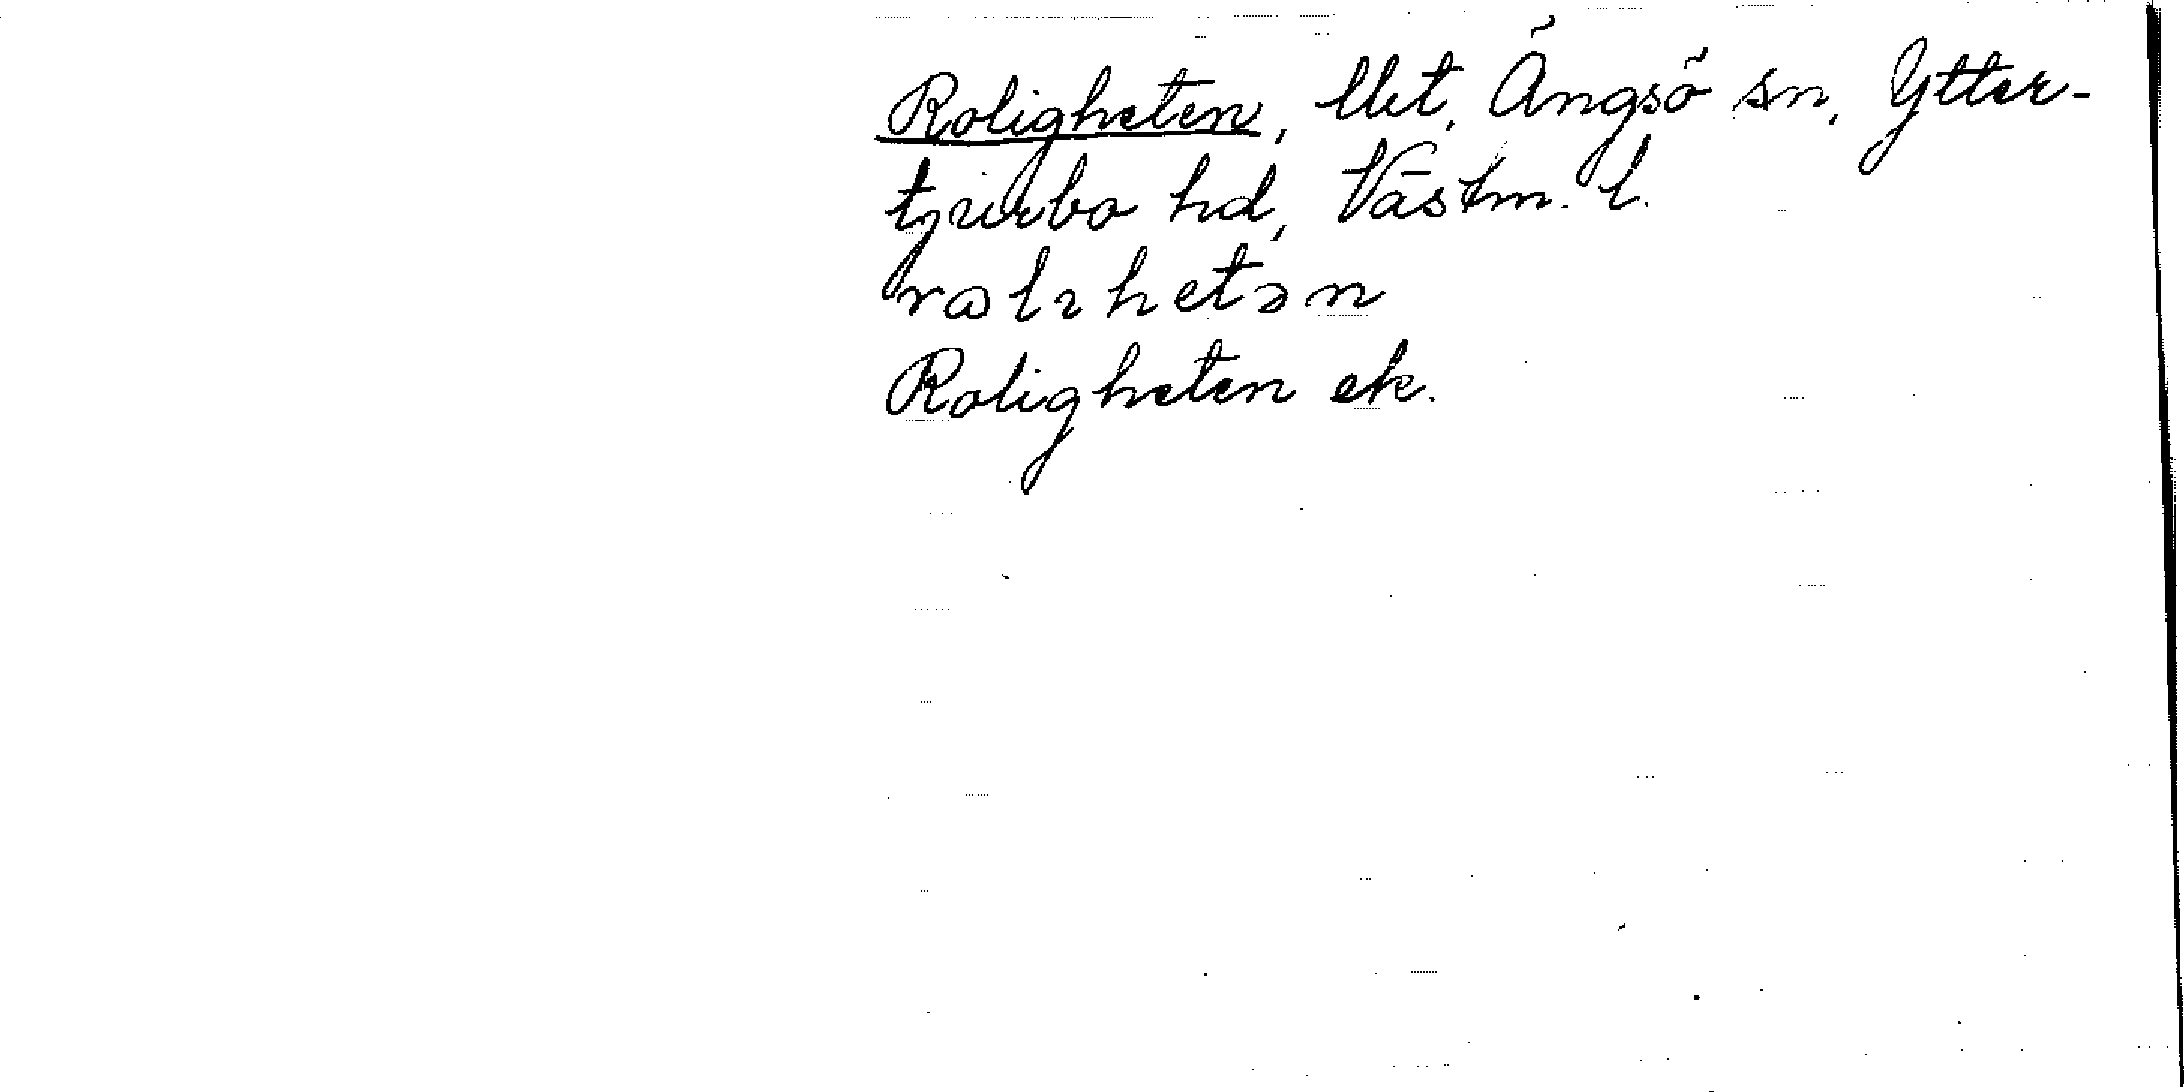 Roligheten, llet, Ängsö sn, Ytter-
tjurbo hd, Västm. l.
rolıhetən
Roligheten ek.